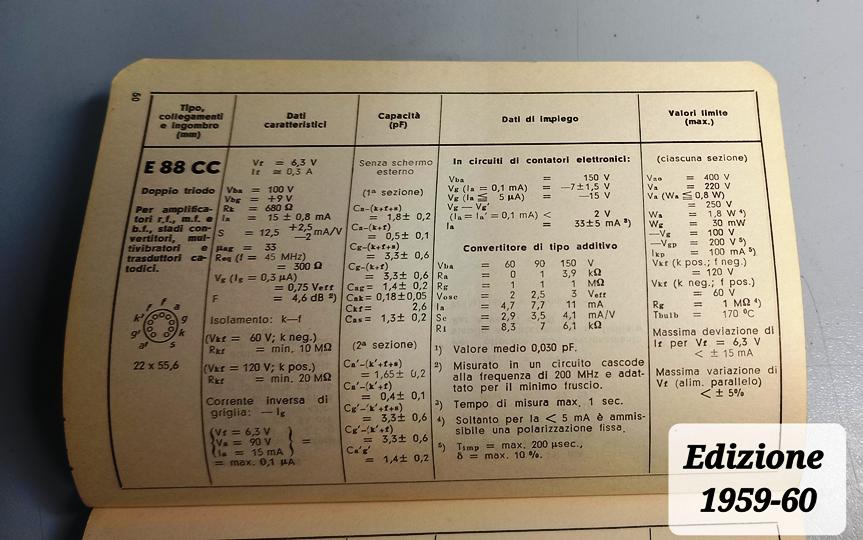 60
Tipo,
collegamenti
e ingombro
(mm)
Dati
caratteristici
Capacità
(pF)
Dati di impiego
Valori limite
(max.)
E 88 CC
Doppio triodo
Per amplifica-
tori r.f., m.f. e
b.f., stadi con-
vertitori, mul-
tivibratori e
trasduttori ca-
todici.
f f a
k' g
g' k
a' s
22 x 55,6
Vf = 6,3 V
If ≅ 0,3 A
Vba = 100 V
Vbg = +9 V
Rk = 680 Ω
Ia = 15 ± 0,8 mA
S = 12,5 +2,5 −2 mA/V
μag = 33
Req (f = 45 MHz)
= 300 Ω
Vg (Ig = 0,3 μA)
= 0,75 Veff
F = 4,6 dB ²)
Isolamento: k—f
(Vkf = 60 V; k neg.)
Rkf = min. 10 MΩ
(Vkf = 120 V; k pos.)
Rkf = min. 20 MΩ
Corrente inversa di
griglia: — Ig
Vf = 6,3 V
Va = 90 V
Ia = 15 mA
=
= max. 0,1 μA
Senza schermo
esterno
(1ª sezione)
Ca-(k+f+s)
= 1,8± 0,2
Ca-(k+f)
= 0,5± 0,1
Cg-(k+f+s)
= 3,3± 0,6
Cg-(k+f)
= 3,3± 0,6
Cag = 1,4± 0,2
Cak = 0,18±0,05
Ckf = 2,6
Cas = 1,3± 0,2
(2ª sezione)
Ca'-(k'+f+s)
= 1,65± 0,2
Ca'-(k'+f)
= 0,4± 0,1
Cg'-(k'+f+s)
= 3,3± 0,6
Cg'-(k'+f)
= 3,3± 0,6
Ca'g'
= 1,4± 0,2
In circuiti di contatori elettronici:
Vba = 150 V
Vg (Ia = 0,1 mA) = −7±1,5 V
Vg (Ia ≦ 5 μA) = −15 V
Vg — Vg'
(Ia = Ia' = 0,1 mA) < 2 V
Ia 33±5 mA ³)
Convertitore di tipo additivo
Vba = 60 90 150 V
Ra = 0 1 3,9 kΩ
Rg = 1 1 1 MΩ
Vosc = 2 2,5 3 Veff
Ia = 4,7 7,7 11 mA
Sc = 2,9 3,5 4,1 mA/V
Ri = 8,3 7 6,1 kΩ
¹) Valore medio 0,030 pF.
²) Misurato in un circuito cascode
alla frequenza di 200 MHz e adat-
tato per il minimo fruscio.
³) Tempo di misura max. 1 sec.
⁴) Soltanto per Ia < 5 mA è ammis-
sibile una polarizzazione fissa.
⁵) Timp = max. 200 μsec.,
δ = max. 10 %.
(ciascuna sezione)
Vao = 400 V
Va = 220 V
Va (Wa ≦ 0,8 W)
= 250 V
Wa = 1,8 W ⁴)
Wg = 30 mW
—Vg = 100 V
—Vgp = 200 V ⁵)
Ikp = 100 mA ⁵)
Vkf (k pos.; f neg.)
= 120 V
Vkf (k neg.; f pos.)
= 60 V
Rg = 1 MΩ ⁴)
Tbulb = 170 ºC
Massima deviazione di
If per Vf = 6,3 V
< ± 15 mA
Massima variazione di
Vf (alim. parallelo)
< ± 5%
Edizione
1959-60